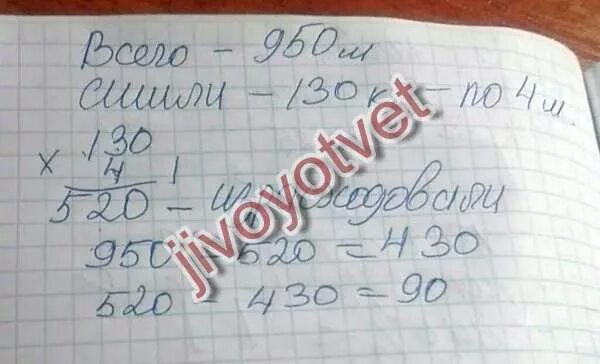 Всего – 950 м
Сшили – 130 к – по 4 м.
× 130
4
520 – израсходовали
950 – 520 = 430
520 – 430 = 90
jivoyotvet